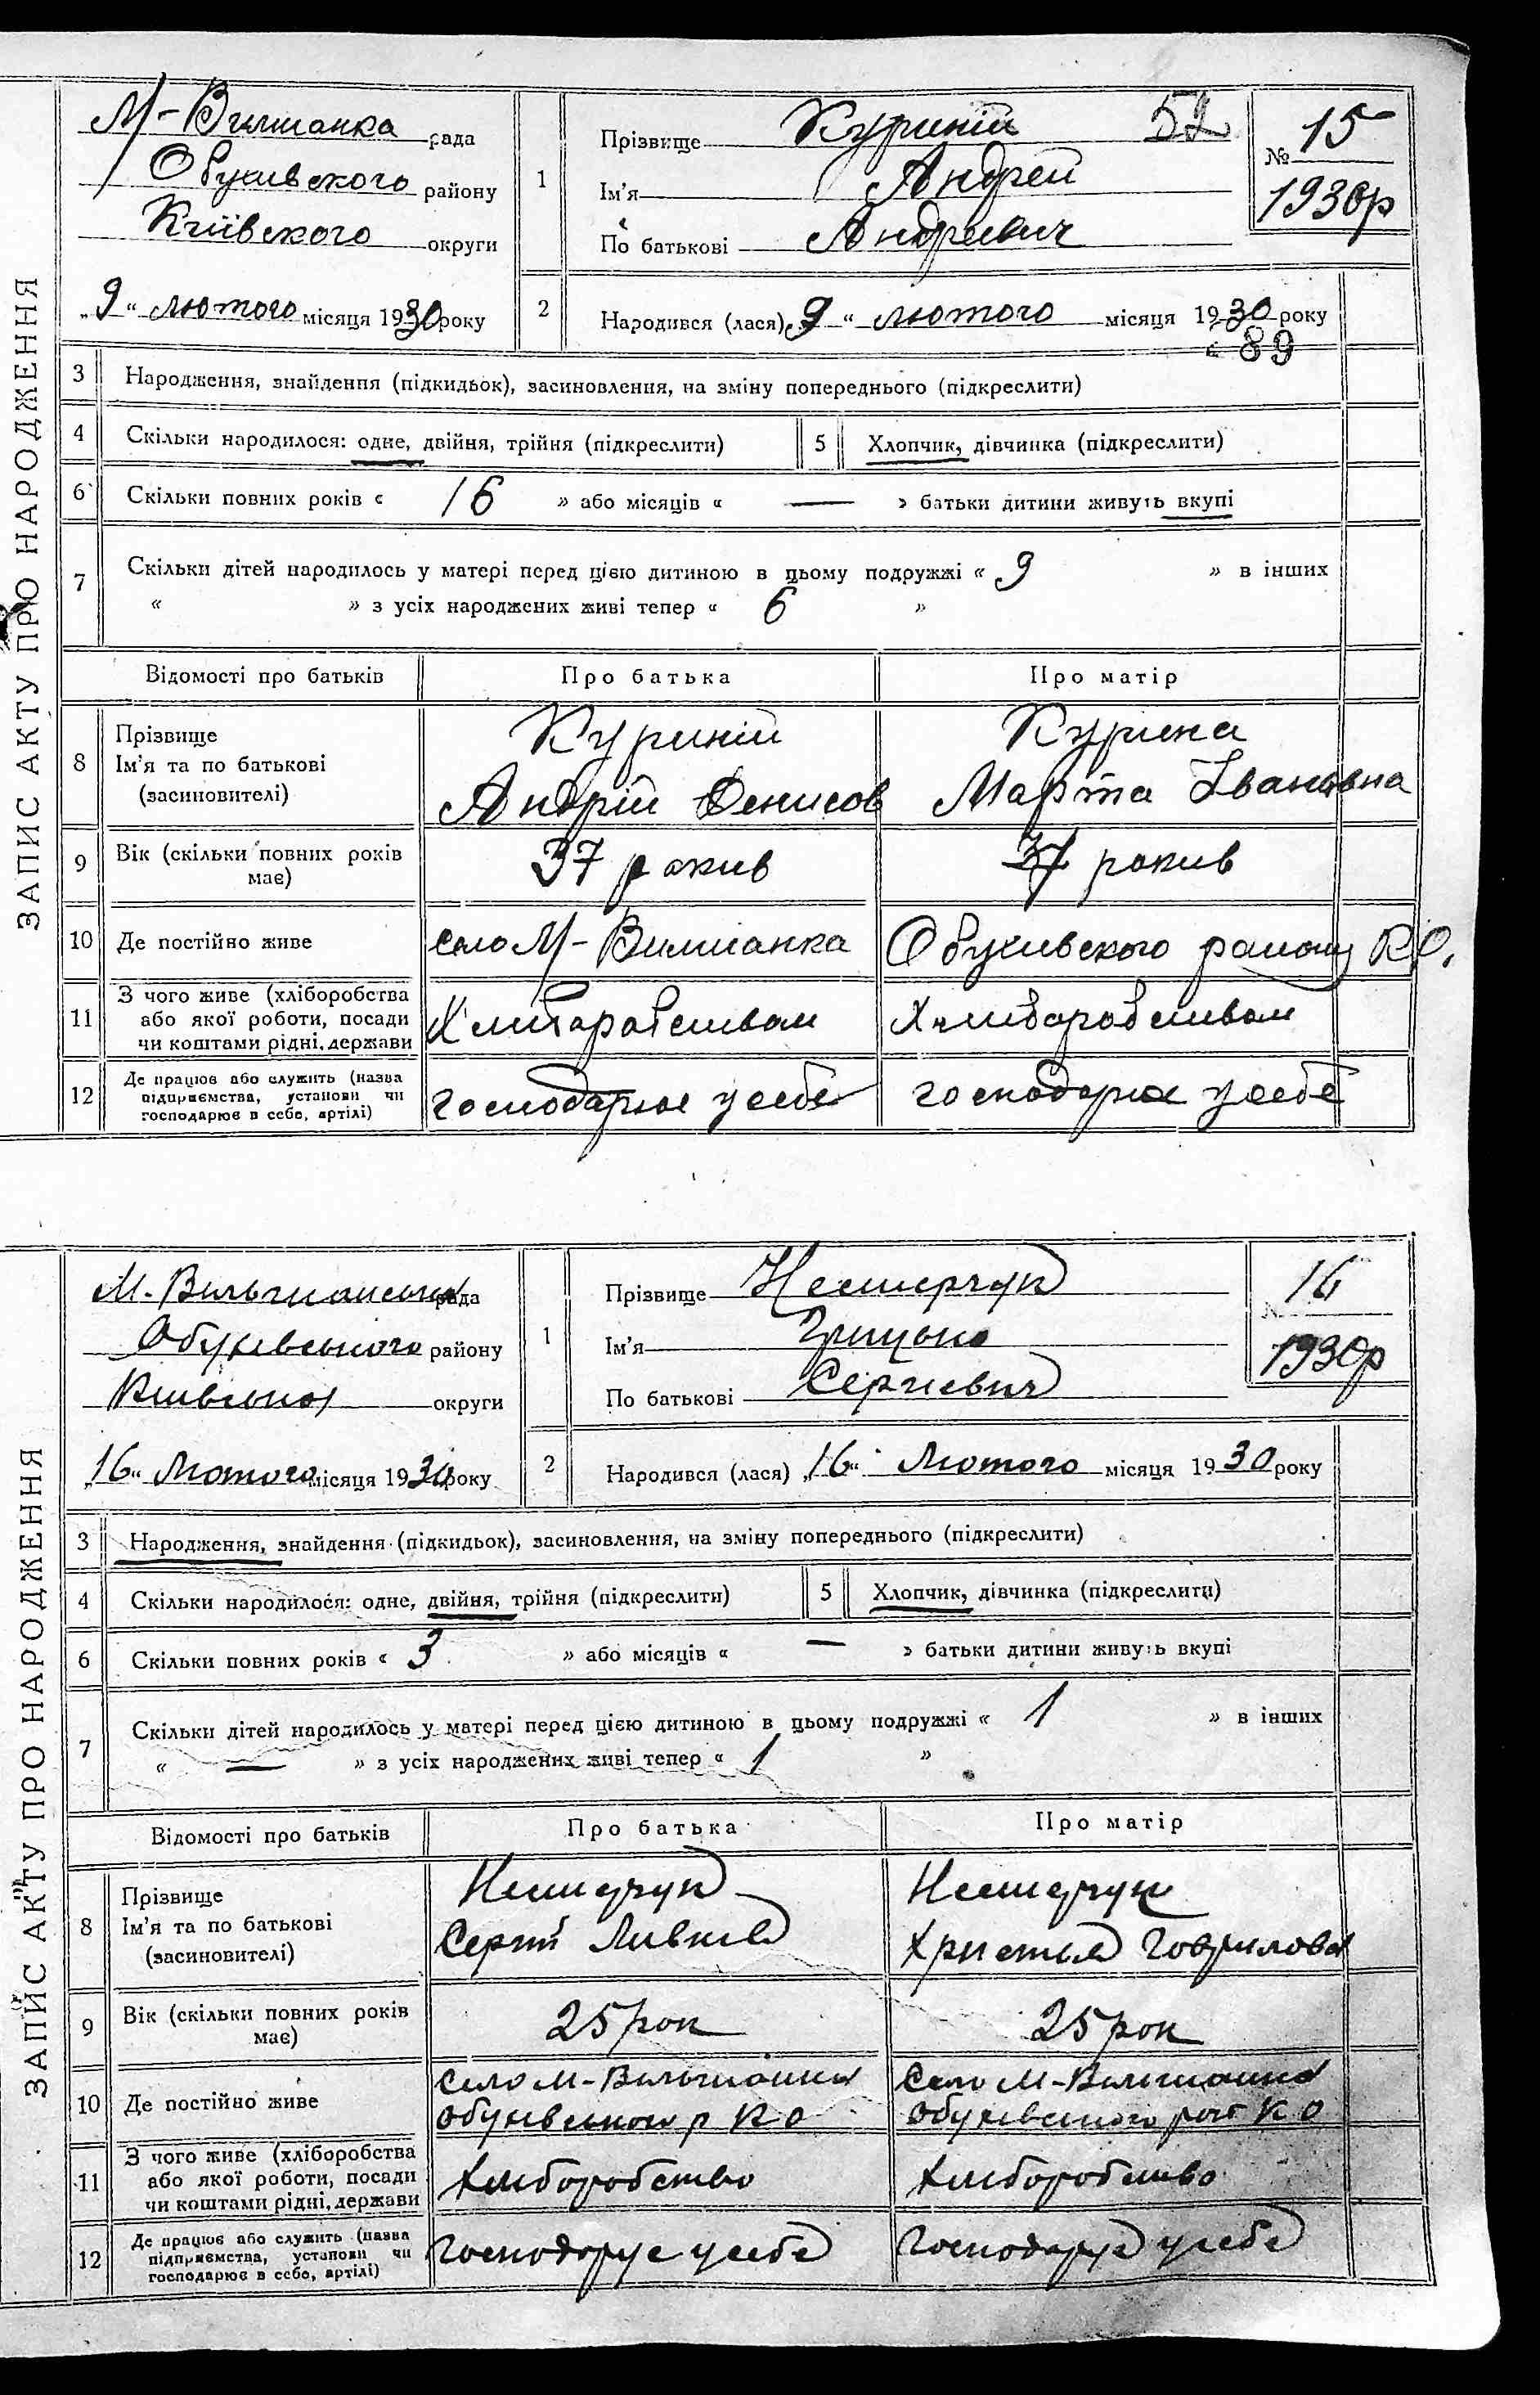 ЗАПИС АКТУ ПРО НАРОДЖЕННЯ
М-Вилшанка рада
Обухивского району
Київского округи
„9“ лютого місяця 1930 року
1
Прізвище Куриній 52
Ім'я Андрей
По батькові Андриевич
№ 15
1930р
2
Народився (лася) „9“ лютого місяця 1930 року
89
3 Народження, знайдення (підкидьок), засиновлення, на зміну попереднього (підкреслити)
4 Скільки народилося: одне, двійня, трійня (підкреслити) 5 Хлопчик, дівчинка (підкреслити)
6 Скільки повних років « 16 » або місяців « — » батьки дитини живуть вкупі
7 Скільки дітей народилось у матері перед цією дитиною в цьому подружжі « 9 » в інших
« » з усіх народжених живі тепер « 6 »
Відомості про батьків Про батька Про матір
8 Прізвище
Ім'я та по батькові
(засиновителі)
Куриній
Андрій Денисов
Курина
Марта Івановна
9 Вік (скільки повних років
має)
37 рокив
37 рокив
10 Де постійно живе село М-Вилшанка Обухивского району К О.
11 З чого живе (хліборобства
або якої роботи, посади
чи коштами рідні, держави
12 Де працює або служить (назва
підприємства, установи чи
господарює в себе, артілі)
господарює у себе господарює у себе
ЗАПИС АКТУ ПРО НАРОДЖЕННЯ
М. Вильшанська рада
Обухівського району
округи
„16“ Лютого місяця 1930 року
1
Прізвище
Ім'я Грицько
По батькові Сергієвич
№ 16
1930р
2
Народився (лася) „16“ Лютого місяця 1930 року
3 Народження, знайдення (підкидьок), засиновлення, на зміну попереднього (підкреслити)
4 Скільки народилося: одне, двійня, трійня (підкреслити) 5 Хлопчик, дівчинка (підкреслити)
6 Скільки повних років « 3 » або місяців « — » батьки дитини живуть вкупі
7 Скільки дітей народилось у матері перед цією дитиною в цьому подружжі « 1 » в інших
« — » з усіх народжених живі тепер « 1 »
Відомості про батьків Про батька Про матір
8 Прізвище
Ім'я та по батькові
(засиновителі)
Сергій
Христья Гаврилова
9 Вік (скільки повних років
має)
25 рок
25 рок
10 Де постійно живе
село М-Вильшанка
Обухівського р К О
Село М-Вильшанка
Обухівського К О
11 З чого живе (хліборобства
або якої роботи, посади
чи коштами рідні, держави
Хлиборобство
Хлиборобство
12 Де працює або служить (назва
підприємства, установи чи
господарює в себе, артілі)
Господарує у себе
Господарує у себе